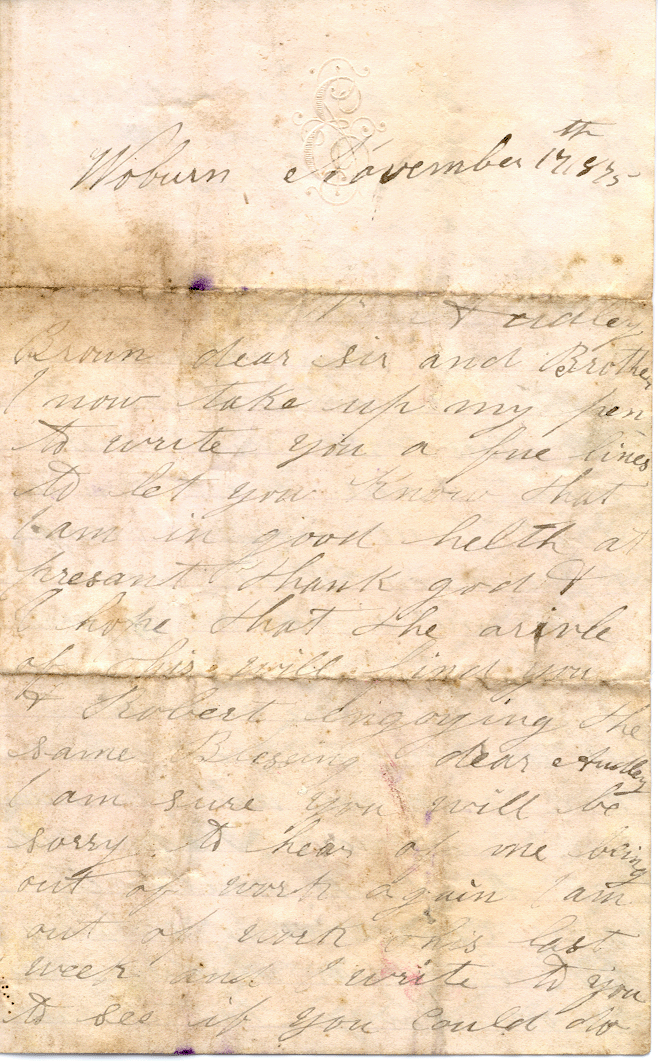 Woburn November 17th 1875
Mr Audley
Broun dear sir and Brother
I now take up my pen
to write you a fue lines
to let you Know that
I am in good helth at
presant thank god &
I hope that the arivle
of this will find you
& Robert Engoying the
same Blessing dear Audley
I am sure you will be
sorry to hear of me being
out of work again I am
out of work this last
week and I write to you
to see if you could do